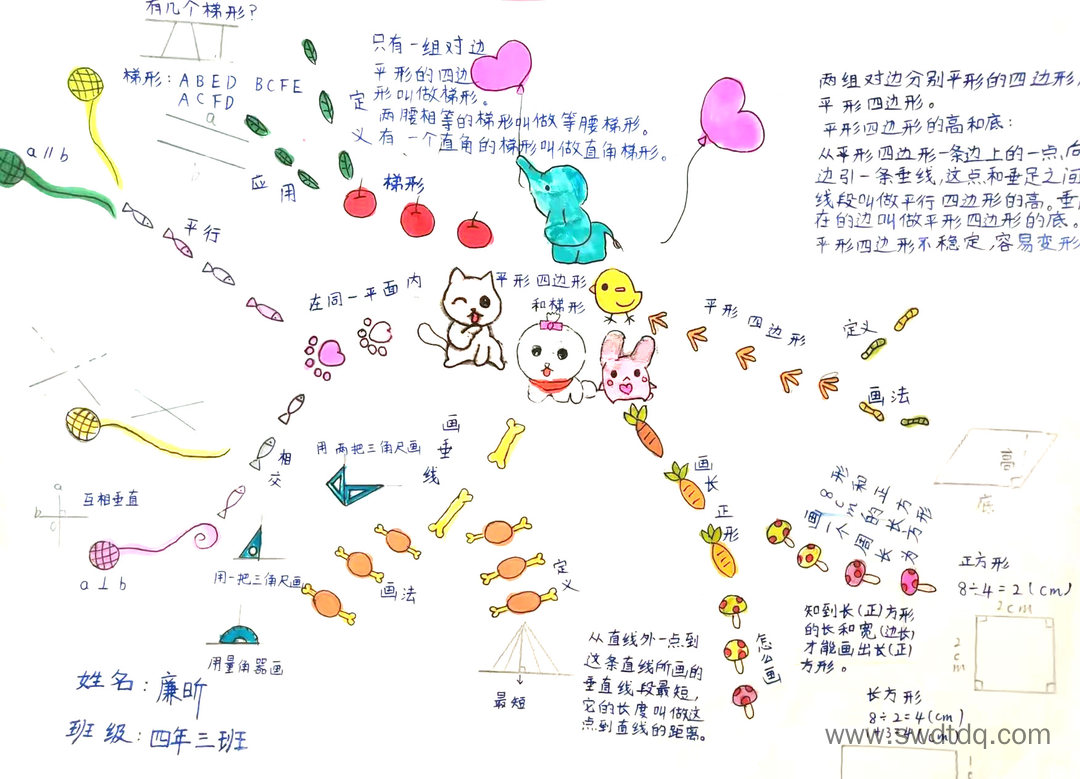 有几个梯形?
梯形: ABED BCFE
ACFD
a
b
应用
只有一组对边
平形的四边
形叫做梯形。
定义
两腰相等的梯形叫做等腰梯形。
有一个直角的梯形叫做直角梯形。
梯形
两组对边分别平形的四边形
平形四边形。
平形四边形的高和底:
从平形四边形一条边上的一点,向
边引一条垂线,这点和垂足之间
线段叫做平行四边形的高。垂
在的边叫做平形四边形的底。
平形四边形不稳定,容易变形
a∥b
平行
在同一平面内
平形四边形
和梯形
平形四边形
定义
画法
高
底
相交
a
b
互相垂直
a⊥b
画垂线
用两把三角尺画
用一把三角尺画
用量角器画
画法
定义
最短
从直线外一点到
这条直线所画的
垂直线段最短,
它的长度叫做这
点到直线的距离。
画长正形
怎么画
形和正方形
8cm的长方形
画一个周长方
知到长(正)方形
的长和宽(边长)
才能画出长(正)
方形。
正方形
8÷4=2(cm)
2cm
2cm
长方形
8÷2=4(cm)
www.swdtdq.com
姓名:廉昕
班级:四年三班